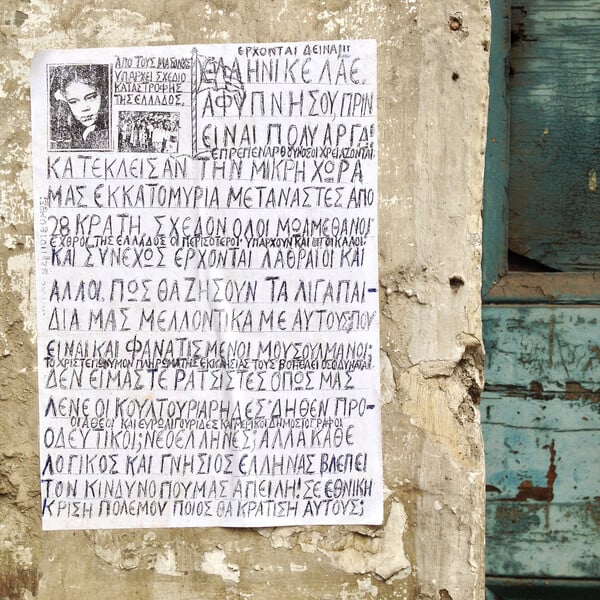 ΕΡΧΟΝΤΑΙ ΔΕΙΝΑ!!!
ΑΠΟ ΤΟΥΣ
ΥΠΑΡΧΕΙ ΣΧΕΔΙΟ
ΚΑΤΑΣΤΡΟΦΗΣ
ΤΗΣ ΕΛΛΑΔΟΣ,
ΕΛΛΗΝΙΚΕ ΛΑΕ,
ΑΦΥΠΝΗΣΟΥ, ΠΡΙΝ
ΕΙΝΑΙ ΠΟΛΥ ΑΡΓΑ!
ΧΡΕΙΑΖΟΝΤΑΙ
ΚΑΤΕΚΛΕΙΣΑΝ ΤΗΝ ΜΙΚΡΗ ΧΩΡΑ
ΜΑΣ ΕΚΚΑΤΟΜΥΡΙΑ ΜΕΤΑΝΑΣΤΕΣ ΑΠΟ
28 ΚΡΑΤΗ, ΣΧΕΔΟΝ ΟΛΟΙ ΜΩΑΜΕΘΑΝΟΙ,
ΕΧΘΡΟΙ ΤΗΣ ΕΛΛΑΔΟΣ ΟΙ ΠΕΡΙΣΟΤΕΡΟΙ. ΥΠΑΡΧΟΥΝ ΚΑΙ ΚΑΛΟΙ.
ΚΑΙ ΣΥΝΕΧΩΣ ΕΡΧΟΝΤΑΙ ΛΑΘΡΑΙΟΙ ΚΑΙ
ΑΛΛΟΙ. ΠΩΣ ΘΑ ΖΗΣΟΥΝ ΤΑ ΛΙΓΑ ΠΑΙ-
ΔΙΑ ΜΑΣ ΜΕΛΛΟΝΤΙΚΑ ΜΕ ΑΥΤΟΥΣ, ΠΟΥ
ΕΙΝΑΙ ΚΑΙ ΦΑΝΑΤΙΣΜΕΝΟΙ ΜΟΥΣΟΥΛΜΑΝΟΙ;
ΤΟ ΧΡΙΣΤΕΠΩΝΥΜΟΝ ΠΛΗΡΩΜΑ ΤΗΣ ΕΚΚΛΗΣΙΑΣ ΤΟΥΣ ΒΟΗΘΕΙ ΟΣΟ ΔΥΝΑΤΑΙ.
ΔΕΝ ΕΙΜΑΣΤΕ ΡΑΤΣΙΣΤΕΣ ΟΠΩΣ ΜΑΣ
ΛΕΝΕ ΟΙ ΚΟΥΛΤΟΥΡΙΑΡΗΔΕΣ ΔΗΘΕΝ ΠΡΟ-
ΟΙ ΑΘΕΟΙ ΚΑΙ ΕΥΡΩΛΙΓΟΥΡΙΔΕΣ ΚΑΙ ΜΕΡΙΚΟΙ ΔΗΜΟΣΙΟΓΡΑΦΟΙ
ΟΔΕΥΤΙΚΟΙ, ΝΕΟΕΛΛΗΝΕΣ, ΑΛΛΑ ΚΑΘΕ
ΛΟΓΙΚΟΣ ΚΑΙ ΓΝΗΣΙΟΣ ΕΛΛΗΝΑΣ ΒΛΕΠΕΙ
ΤΟΝ ΚΙΝΔΥΝΟ ΠΟΥ ΜΑΣ ΑΠΕΙΛΗ! ΣΕ ΕΘΝΙΚΗ
ΚΡΙΣΗ ΠΟΛΕΜΟΥ ΠΟΙΟΣ ΘΑ ΚΡΑΤΙΣΗ ΑΥΤΟΥΣ;